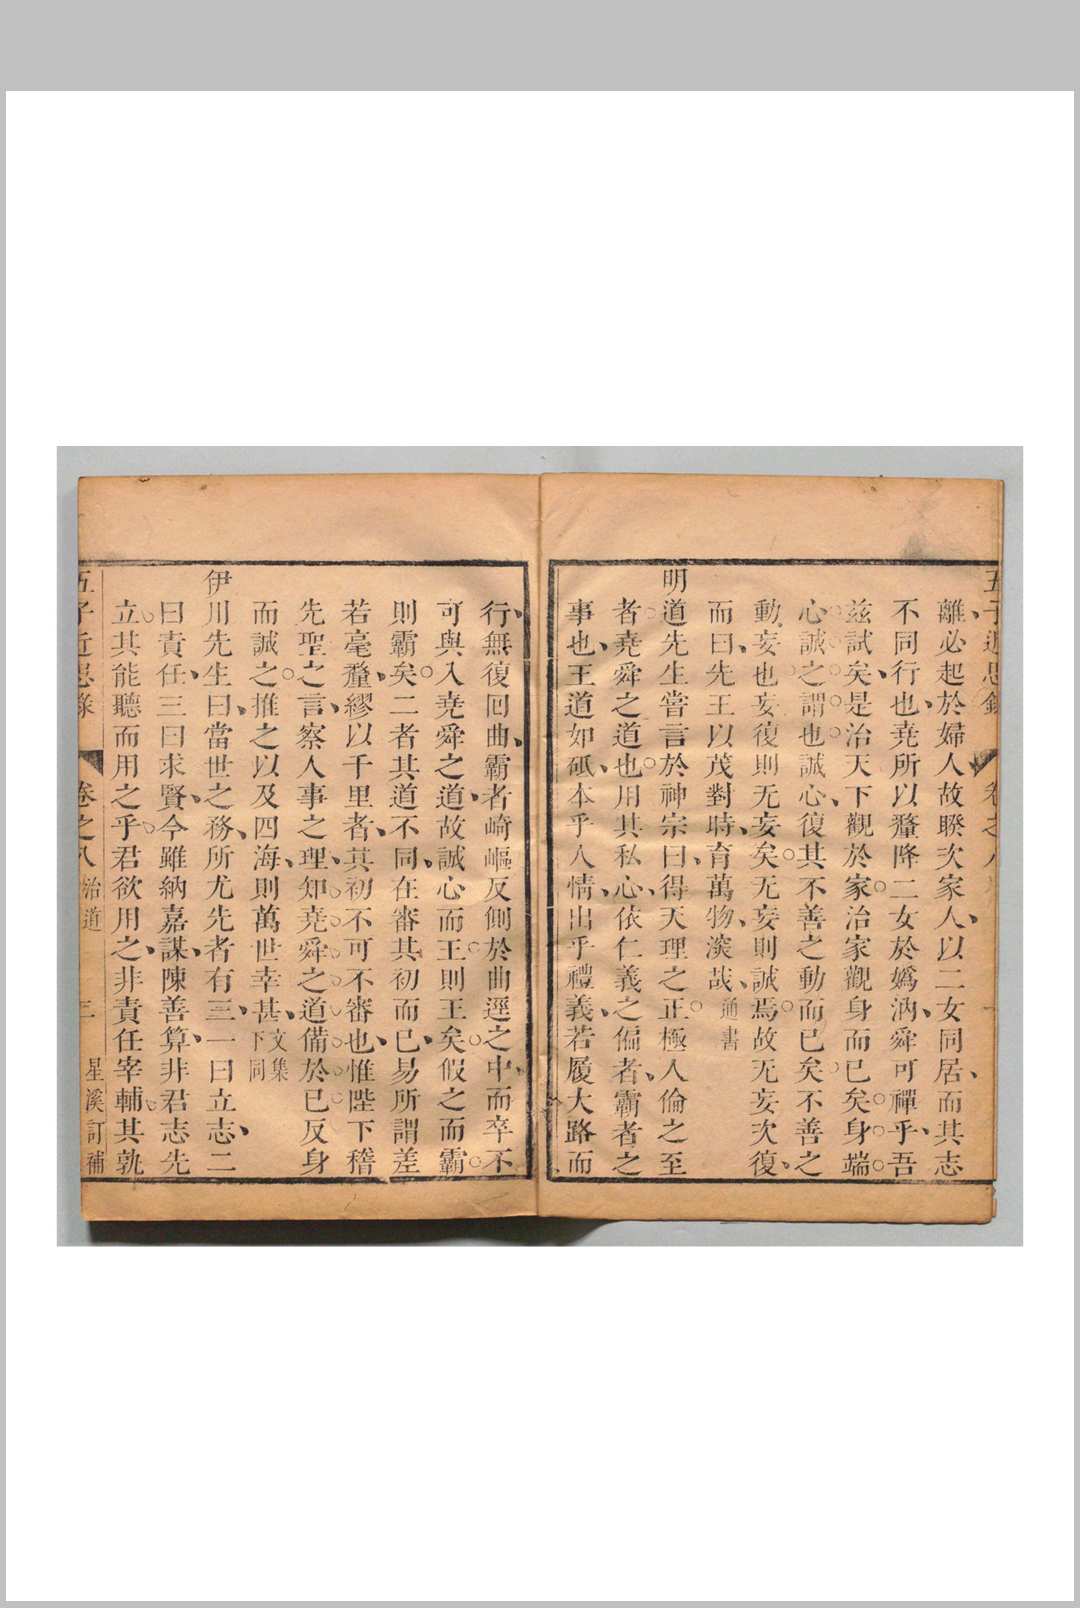 離必起於婦人故睽次家人以二女同居而其志
不同行也堯所以釐降二女於嬀汭舜可禪乎吾
茲試矣是治天下觀於家治家觀身而已矣身端
心誠之謂也誠心復其不善之動而已矣不善之
動妄也妄復則无妄矣无妄則誠焉故无妄次復
而曰先王以茂對時育萬物深哉通書
明道先生嘗言於神宗曰得天理之正極人倫之至
者堯舜之道也用其私心依仁義之偏者霸者之
事也王道如砥本乎人情出乎禮義若履大路而
行無復回曲霸者崎嶇反側於曲逕之中而卒不
可與入堯舜之道故誠心而王則王矣假之而霸
則霸矣二者其道不同在審其初而已易所謂差
若毫釐繆以千里者其初不可不審也惟陛下稽
先聖之言察人事之理知堯舜之道備於已反身
而誠之推之以及四海則萬世幸甚文集下同
伊川先生曰當世之務所尤先者有三一曰立志二
曰責任三曰求賢今雖納嘉謀陳善算非君志先
立其能聽而用之乎君欲用之非責任宰輔其孰
五子近思錄 卷之八 治道 三 星溪訂補